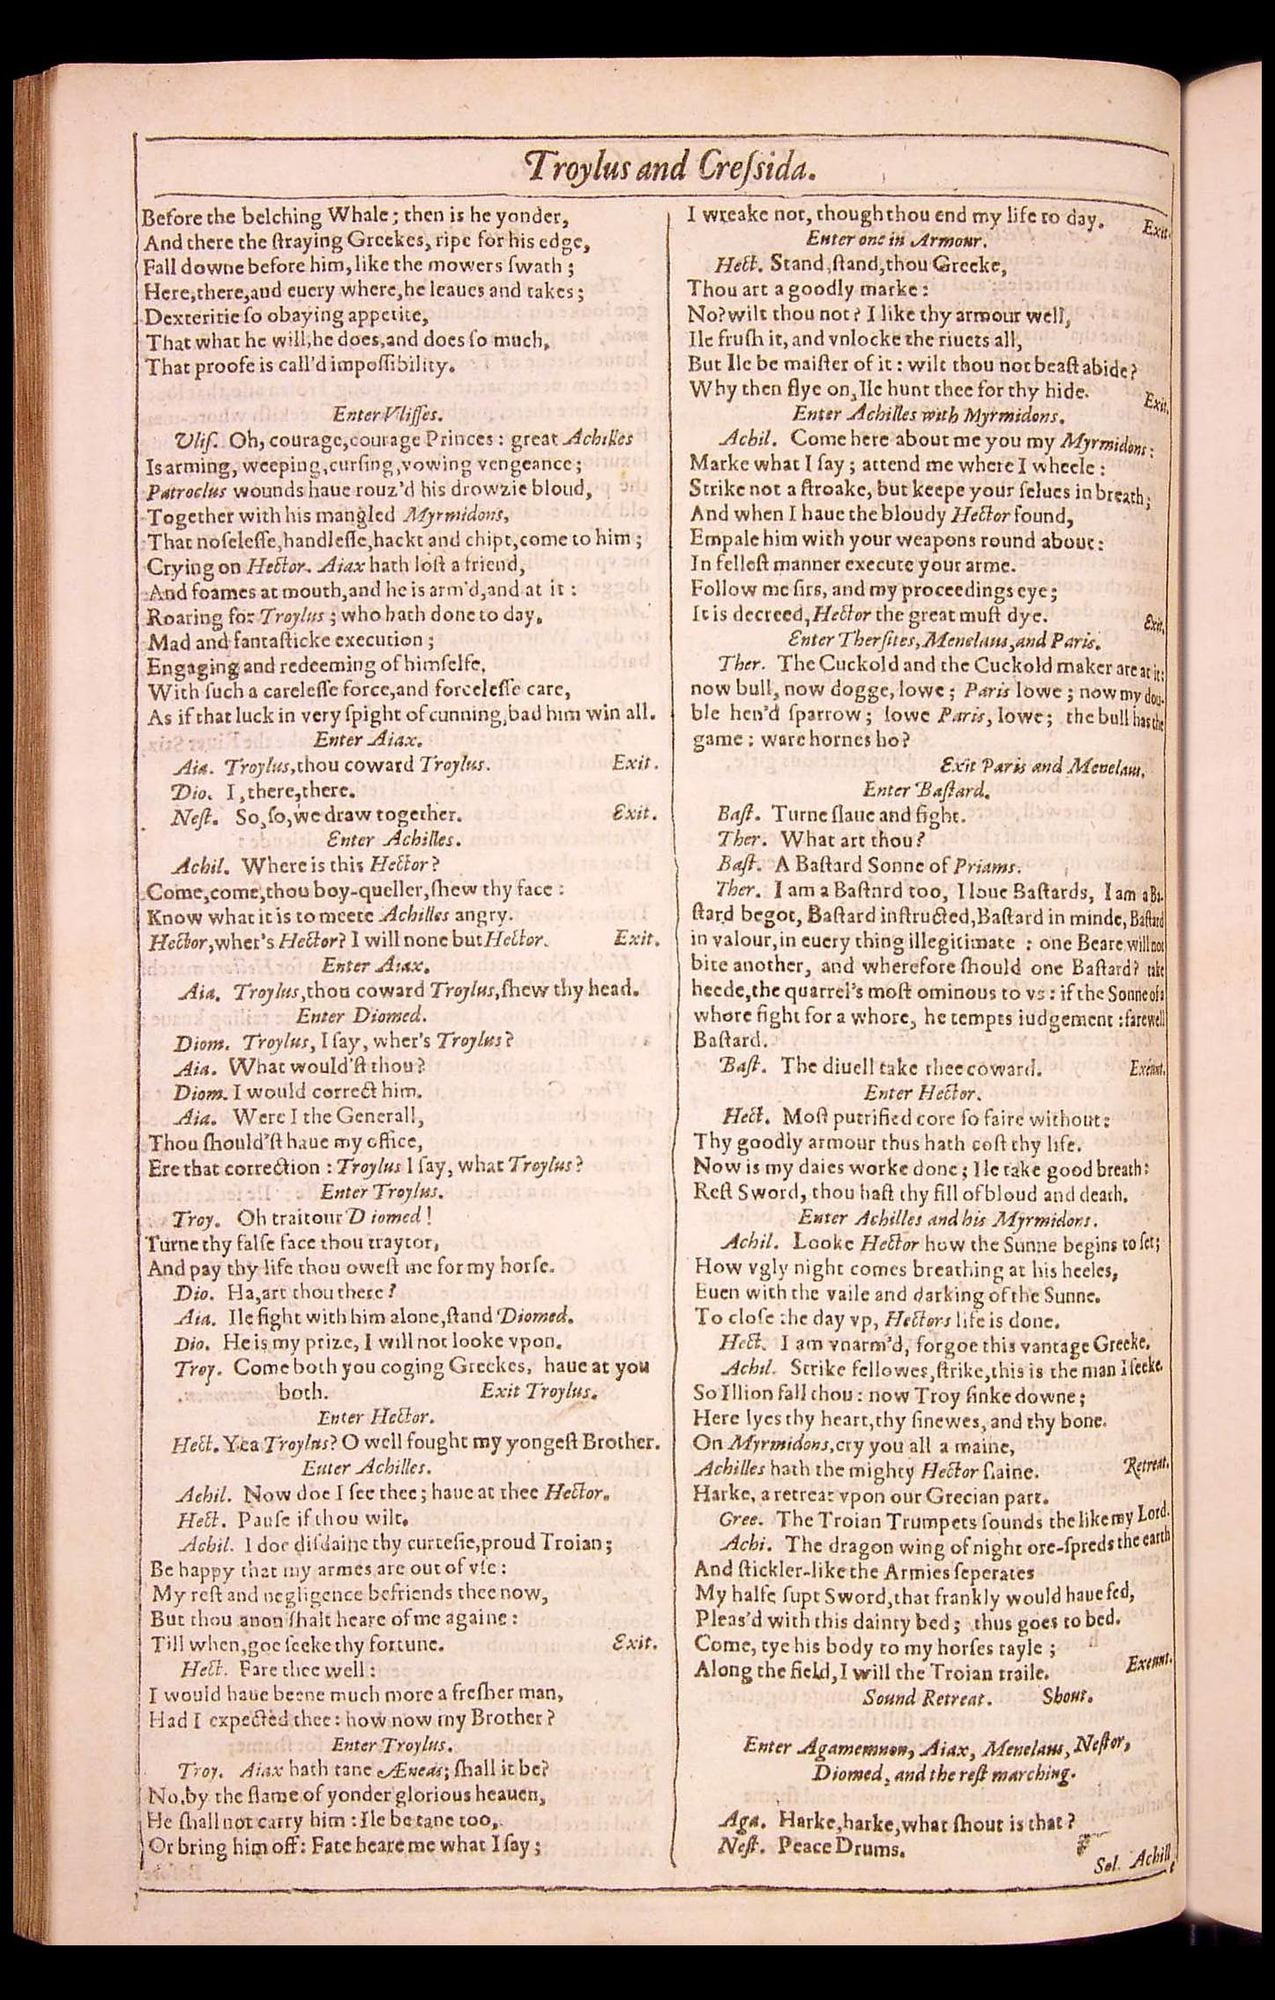 Troylus and Creſsida.
Before the belching Whale; then is he yonder,
And there the ſtraying Greekes, ripe for his edge,
Fall downe before him, like the mowers ſwath;
Here, there, and euery where, he leaues and takes;
Dexteritie ſo obaying appetite,
That what he will, he does, and does ſo much,
That proofe is call'd impoſſibility.
Enter Vliſſes.
Vliſ. Oh, courage, courage Princes: great Achilles
Is arming, weeping, curſing, vowing vengeance;
Patroclus wounds haue rouz'd his drowzie bloud,
Together with his mangled Myrmidons,
That noſeleſſe, handleſſe, hackt and chipt, come to him;
Crying on Hector. Aiax hath loſt a friend,
And foames at mouth, and he is arm'd, and at it:
Roaring for Troylus; who hath done to day,
Mad and fantaſticke execution;
Engaging and redeeming of himſelfe,
With ſuch a careleſſe force, and forceleſſe care,
As if that luck in very ſpight of cunning, bad him win all.
Enter Aiax.
Aia. Troylus, thou coward Troylus. Exit.
Dio. I, there, there.
Neſt. So, ſo, we draw together. Exit.
Enter Achilles.
Achil. Where is this Hector?
Come, come, thou boy-queller, ſhew thy face:
Know what it is to meete Achilles angry.
Hector, wher's Hector? I will none but Hector. Exit.
Enter Aiax.
Aia. Troylus, thou coward Troylus, ſhew thy head.
Enter Diomed.
Diom. Troylus, I ſay, wher's Troylus?
Aia. What would'ſt thou?
Diom. I would correct him.
Aia. Were I the Generall,
Thou ſhould'ſt haue my office,
Ere that correction: Troylus I ſay, what Troylus?
Enter Troylus.
Troy. Oh traitour Diomed!
Turne thy falſe face thou traytor,
And pay thy life thou oweſt me for my horſe.
Dio. Ha, art thou there?
Aia. Ile fight with him alone, ſtand Diomed.
Dio. He is my prize, I will not looke vpon.
Troy. Come both you coging Greekes, haue at you
both. Exit Troylus.
Enter Hector.
Hect. Yea Troylus? O well fought my yongeſt Brother.
Enter Achilles.
Achil. Now doe I ſee thee; haue at thee Hector.
Hect. Pauſe if thou wilt.
Achil. I doe diſdaine thy curteſie, proud Troian;
Be happy that my armes are out of vſe:
My reſt and negligence befriends thee now,
But thou anon ſhalt heare of me againe:
Till when, goe ſeeke thy fortune. Exit.
Hect. Fare thee well:
I would haue beene much more a freſher man,
Had I expected thee: how now my Brother?
Enter Troylus.
Troy. Aiax hath tane Æneas; ſhall it be?
No, by the flame of yonder glorious heauen,
He ſhall not carry him: Ile be tane too,
Or bring him off: Fate heare me what I ſay;
I wreake not, though thou end my life to day. Exit.
Enter one in Armour.
Hect. Stand, ſtand, thou Greeke,
Thou art a goodly marke:
No? wilt thou not? I like thy armour well,
Ile fruſh it, and vnlocke the riuets all,
But Ile be maiſter of it: wilt thou not beaſt abide?
Why then flye on, Ile hunt thee for thy hide. Exit.
Enter Achilles with Myrmidons.
Achil. Come here about me you my Myrmidons:
Marke what I ſay; attend me where I wheele:
Strike not a ſtroake, but keepe your ſelues in breath;
And when I haue the bloudy Hector found,
Empale him with your weapons round about:
In felleſt manner execute your arme.
Follow me ſirs, and my proceedings eye;
It is decreed, Hector the great muſt dye. Exit.
Enter Therſites, Menelaus, and Paris.
Ther. The Cuckold and the Cuckold maker are at it:
now bull, now dogge, lowe; Paris lowe; now my dou-
ble hen'd ſparrow; lowe Paris, lowe; the bull has the
game: ware hornes ho?
Exit Paris and Menelaus.
Enter Baſtard.
Baſt. Turne ſlaue and fight.
Ther. What art thou?
Baſt. A Baſtard Sonne of Priams.
Ther. I am a Baſtard too, I loue Baſtards, I am a Ba-
ſtard begot, Baſtard inſtructed, Baſtard in minde, Baſtard
in valour, in euery thing illegitimate: one Beare will not
bite another, and wherefore ſhould one Baſtard? take
heede, the quarrel's moſt ominous to vs: if the Sonne of a
whore fight for a whore, he tempts iudgement: farewell
Baſtard.
Baſt. The diuell take thee coward. Exeunt.
Enter Hector.
Hect. Moſt putrified core ſo faire without:
Thy goodly armour thus hath coſt thy life.
Now is my daies worke done; Ile take good breath:
Reſt Sword, thou haſt thy fill of bloud and death.
Enter Achilles and his Myrmidons.
Achil. Looke Hector how the Sunne begins to ſet;
How vgly night comes breathing at his heeles,
Euen with the vaile and darking of the Sunne.
To cloſe the day vp, Hectors life is done.
Hect. I am vnarm'd, forgoe this vantage Greeke.
Achil. Strike fellowes, ſtrike, this is the man I ſeeke.
So Illion fall thou: now Troy ſinke downe;
Here lyes thy heart, thy ſinewes, and thy bone.
On Myrmidons, cry you all a maine,
Achilles hath the mighty Hector ſlaine. Retreat.
Harke, a retreat vpon our Grecian part.
Gree. The Troian Trumpets ſounds the like my Lord.
Achi. The dragon wing of night ore-ſpreds the earth
And ſtickler-like the Armies ſeperates
My halfe ſupt Sword, that frankly would haue fed,
Pleas'd with this dainty bed; thus goes to bed.
Come, tye his body to my horſes tayle;
Along the field, I will the Troian traile. Exeunt.
Sound Retreat. Shout.
Enter Agamemnon, Aiax, Menelaus, Neſtor,
Diomed, and the reſt marching.
Aga. Harke, harke, what ſhout is that?
Neſt. Peace Drums.
Sol. Achill